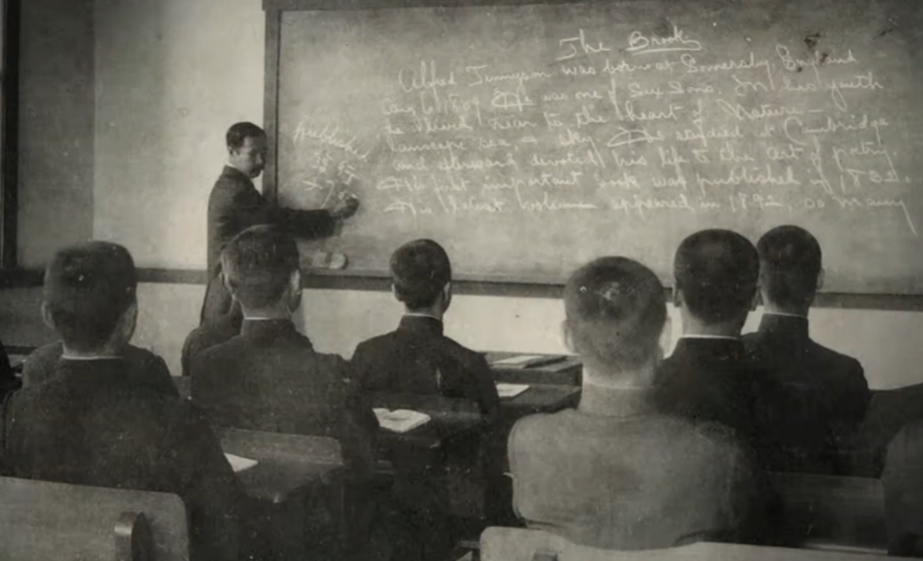 The Brook
Alfred Tennyson was born at Somersby, England
Aug 6, 1809. He was one of Sons. In his youth
he lived near to the heart of Nature—
sea sky. He studied at Cambridge
and afterward devoted his life to the art of poetry.
His first important book was published in 1832.
His latest volume appeared in 1892, so many